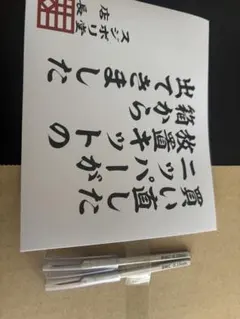 買い直した
ニッパーが
放置キットの
箱から
出てきました
スジボリ堂
店長